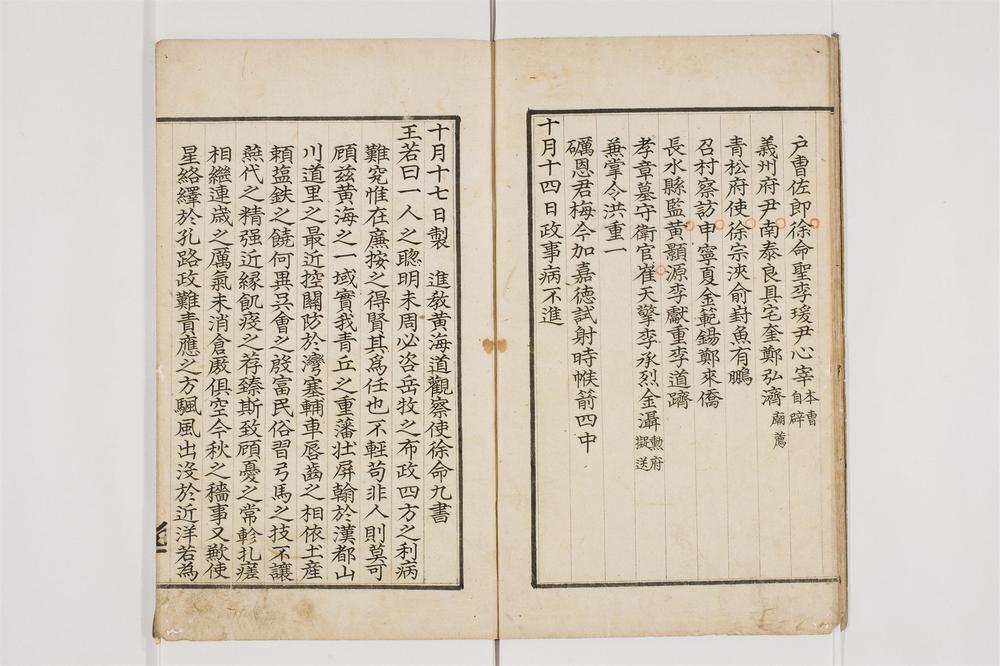 戶曹佐郎徐命聖李瑗尹心宰本曹自辟
義州府尹南泰良具宅奎鄭弘濟廟薦
青松府使徐宗浹俞𡊠魚有鵬
召村察訪申寧夏金範錫鄭來僑
長水縣監黃顥源李獻重李道躋
孝章墓守衛官崔天擎李承烈金灄勳府擬送
兼掌令洪重一
礪恩君梅今加嘉德試射時帿箭四中
十月十四日政事病不進
十月十七日製 進敎黃海道觀察使徐命九書
王若曰一人之聰明未周必咨岳牧之布政四方之利病
難究惟在廉按之得賢其爲任也不輕苟非人則莫可
頋兹黃海之一域實我青丘之重藩壯屏翰於漢都山
川道里之最近控關防於灣塞輔車唇齒之相依土産
賴塩鉄之饒何異吳會之殷富民俗習弓馬之技不讓
燕代之精强近緣飢疫之荐臻斯致顧憂之常軫扎瘥
相繼連歲之厲氣未消倉廒俱空今秋之穡事又歉使
星絡繹於孔路政難責應之方颿風出沒於近洋若為